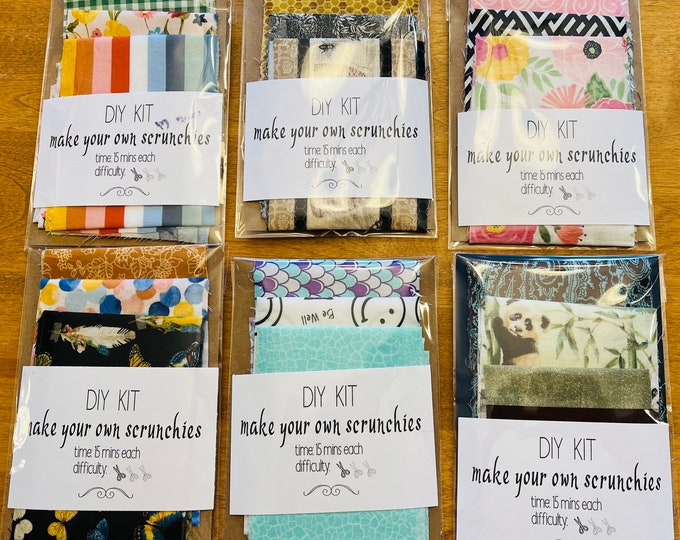 DIY KIT
make your own scrunchies
time: 15 mins each
difficulty:
DIY KIT
make your own scrunchies
time: 15 mins each
difficulty:
DIY KIT
make your own scrunchies
time: 15 mins each
difficulty:
DIY KIT
make your own scrunchies
time: 15 mins each
difficulty:
Be Well
DIY KIT
make your own scrunchies
time: 15 mins each
difficulty:
DIY KIT
make your own scrunchies
time: 15 mins each
difficulty: